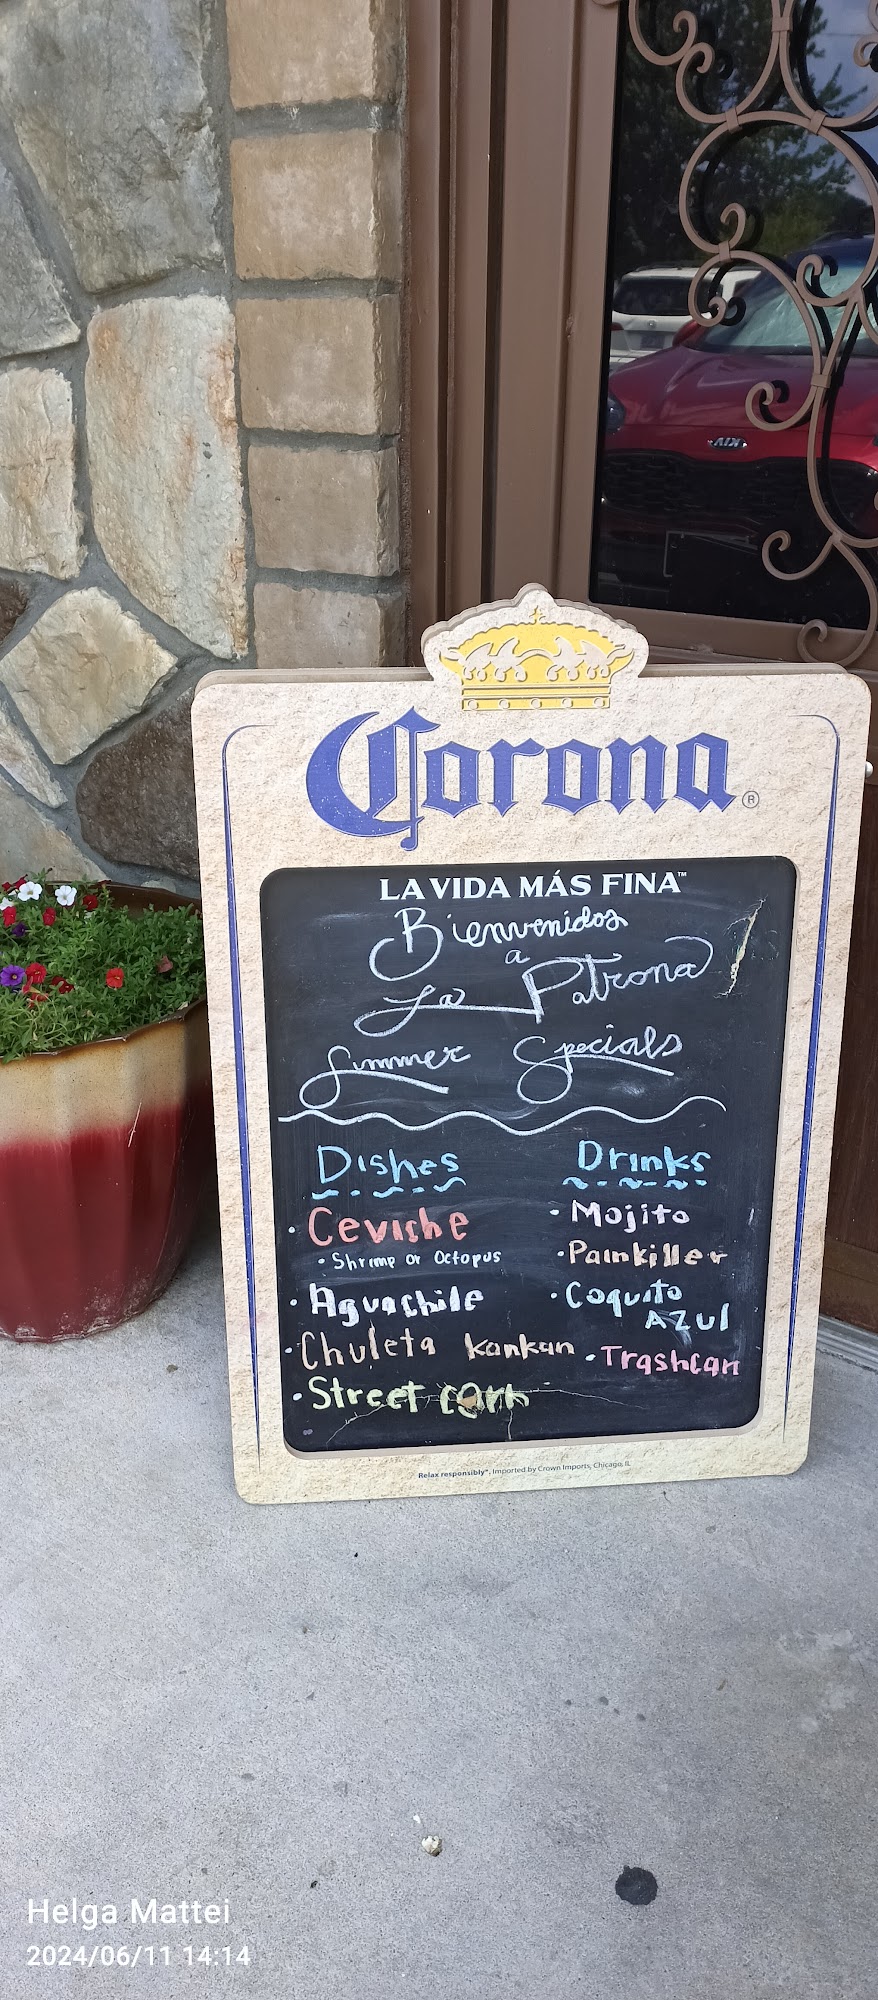 KIA
Corona®
LA VIDA MÁS FINA™
Bienvenidos
a
La Patrona
Summer Specials
Dishes
• Ceviche
• Shrimp or Octopus
• Aguachile
• Chuleta kankan
• Street corn
Drinks
• Mojito
• Painkiller
• Coquito
AZul
• Trashcan
Relax responsibly®. Imported by Crown Imports, Chicago, IL
Helga Mattei
2024/06/11 14:14